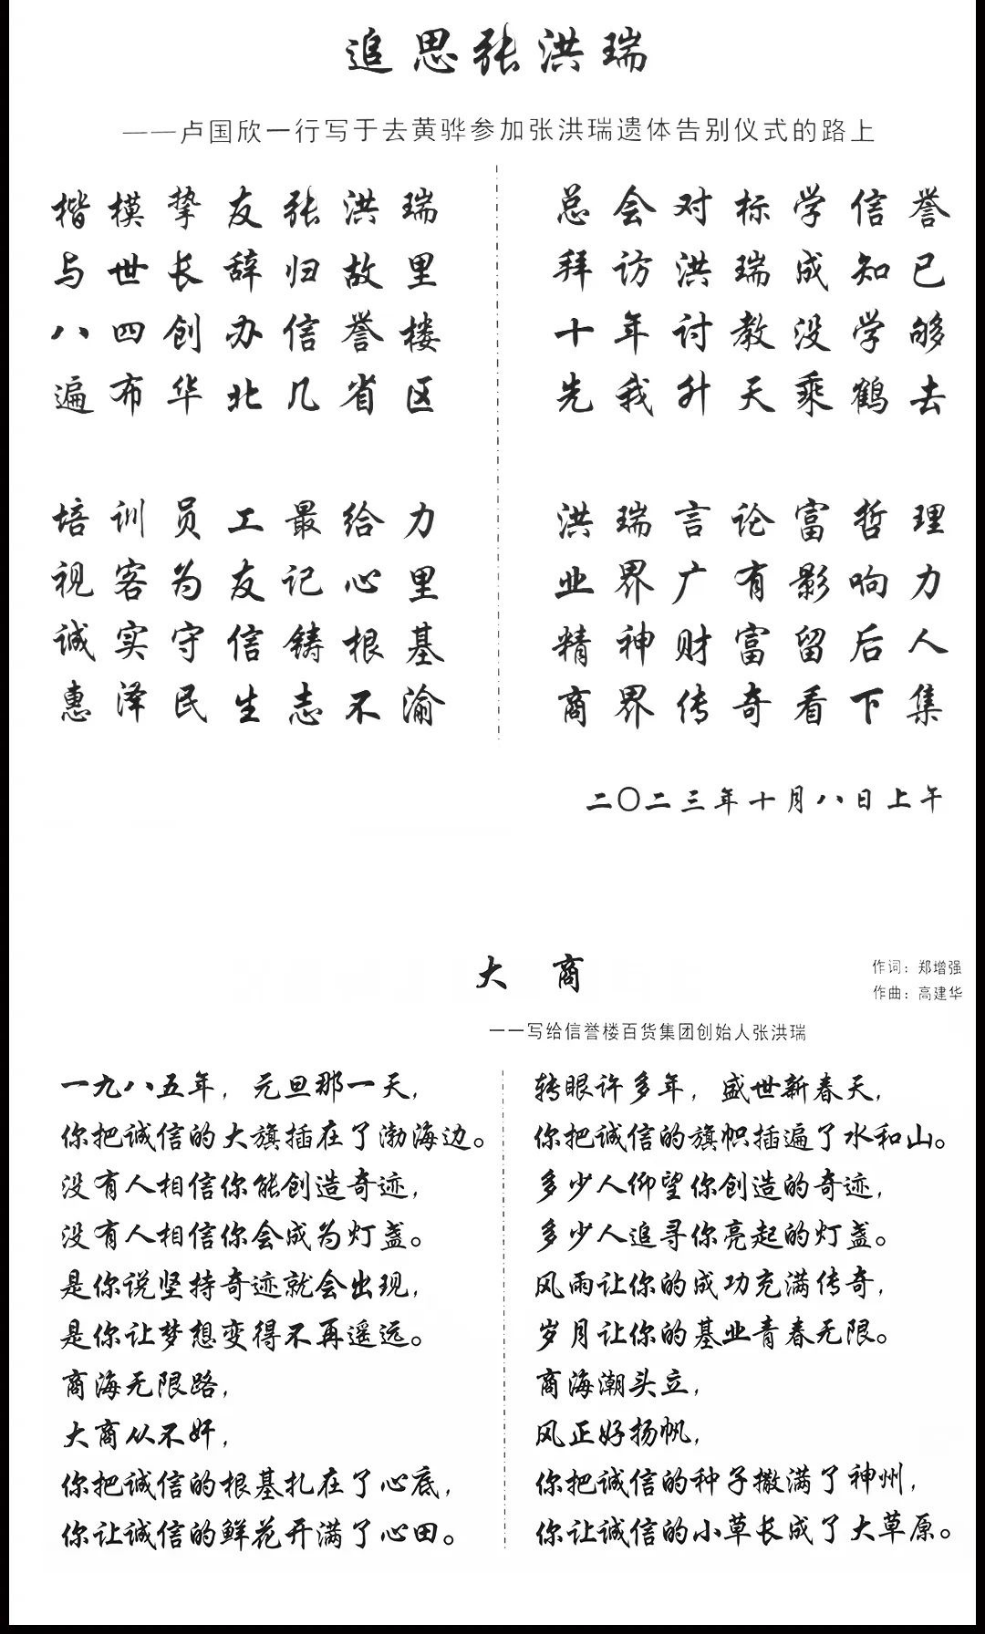 追思张洪瑞
——卢国欣一行写于去黄骅参加张洪瑞遗体告别仪式的路上
楷模挚友张洪瑞
与世长辞归故里
八四创办信誉楼
遍布华北几省区
培训员工最给力
视客为友记心里
诚实守信铸根基
惠泽民生志不渝
总会对标学信誉
拜访洪瑞成知己
十年讨教没学够
先我升天乘鹤去
洪瑞言论富哲理
业界广有影响力
精神财富留后人
商界传奇看下集
二〇二三年十月八日上午
大商
作词：郑增强
作曲：高建华
——写给信誉楼百货集团创始人张洪瑞
一九八五年，元旦那一天，
你把诚信的大旗插在了渤海边。
没有人相信你能创造奇迹，
没有人相信你会成为灯盏。
是你说坚持奇迹就会出现，
是你让梦想变得不再遥远。
商海无限路，
大商从不奸，
你把诚信的根基扎在了心底，
你让诚信的鲜花开满了心田。
转眼许多年，盛世新春天，
你把诚信的旗帜插遍了水和山。
多少人仰望你创造的奇迹，
多少人追寻你亮起的灯盏。
风雨让你的成功充满传奇，
岁月让你的基业青春无限。
商海潮头立，
风正好扬帆，
你把诚信的种子撒满了神州，
你让诚信的小草长成了大草原。